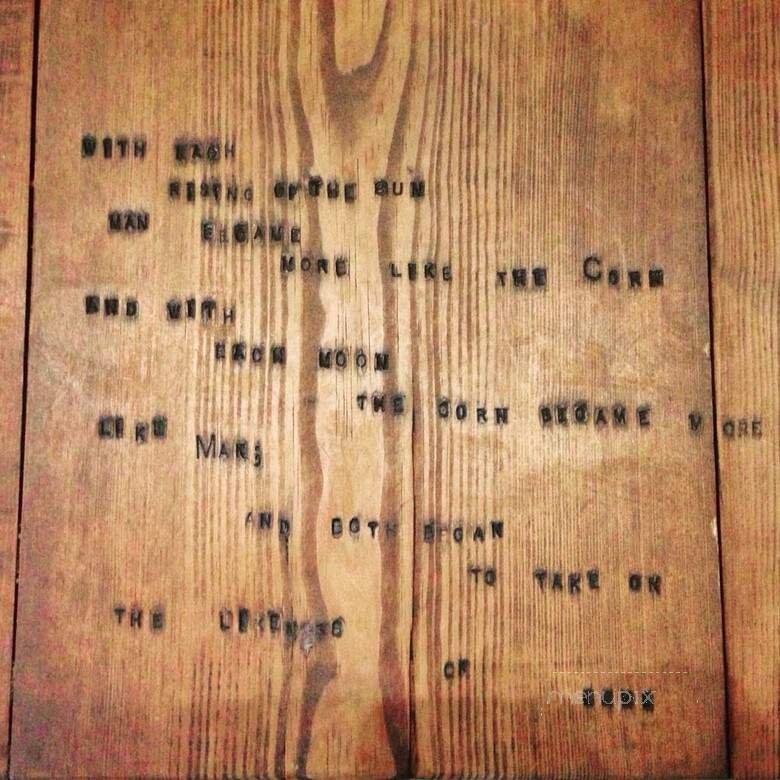 WITH EACH
RISING OF THE SUN
MAN BECAME
MORE LIKE THE CORN
AND WITH
EACH MOON
THE CORN BECAME MORE
LIKE MAN;
AND BOTH BEGAN
TO TAKE ON
THE LIKENESS
OF
menupix